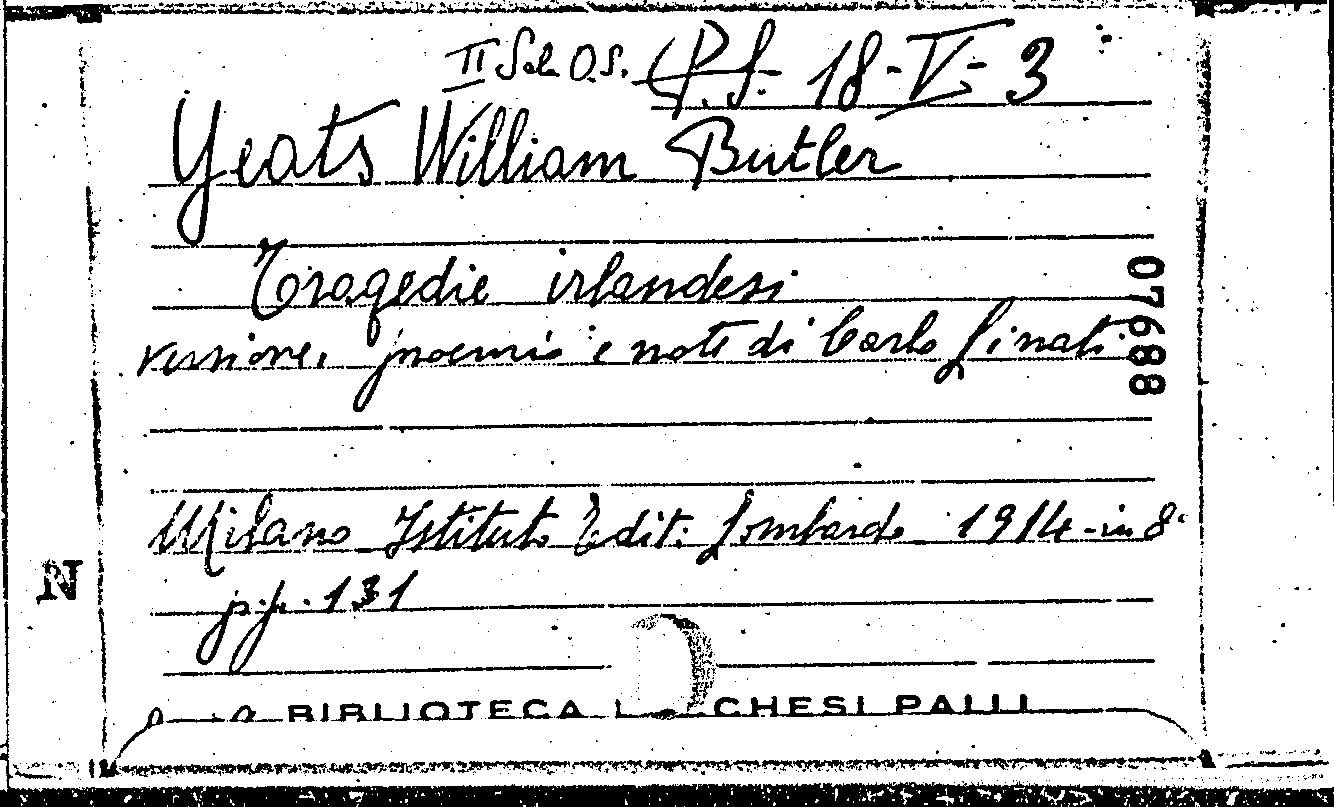 II Sala O.S. P.S. 18-V-3
Yeats William Butler
Tragedie irlandesi
versione, proemio e note di Carlo Linati
07688
Milano Istituto Edit. Lombardo 1914-in 8°
N
pp. 131
BIBLIOTECA L CHESI PALLI